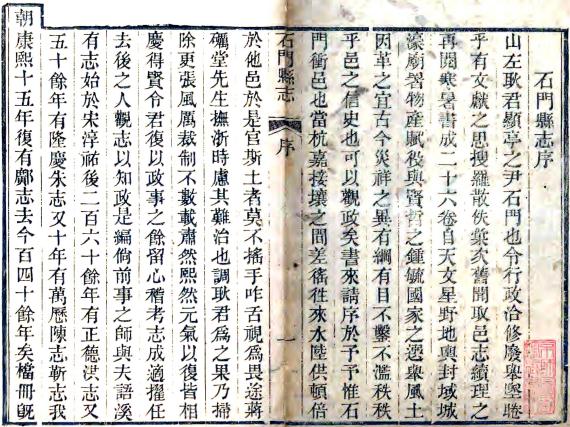 石門縣志序
山左耿君顯亭之尹石門也令行政治修廢舉墜睠
乎有文獻之思搜羅散佚彙次舊聞取邑志續理之
再閱寒暑書成二十六卷自天文星野地輿封域城
濠廟署物產賦役與賢哲之鍾毓國家之選舉風土
因革之宜古今災祥之異有綱有目不鑿不濫秩秩
乎邑之信史也可以觀政矣書來請序於予予惟石
門衝邑也當杭嘉接壤之間差徭徃來水陸供頓倍
石門縣志 序 一
於他邑於是官斯土者莫不搖手咋舌視爲畏途蔣
礪堂先生撫浙時慮其難治也調耿君爲之果乃掃
除更張風厲裁制不數載肅然熙然元氣以復皆相
慶得賢令君復以政事之餘留心稽考志成適擢任
去後之人觀志以知政是編倘前事之師與夫語溪
有志始於宋淳祐後二百六十餘年有正德洪志又
五十餘年有隆慶朱志又十年有萬歷陳志靳志我
朝康熙十五年復有鄺志去今百四十餘年矣檔冊旣